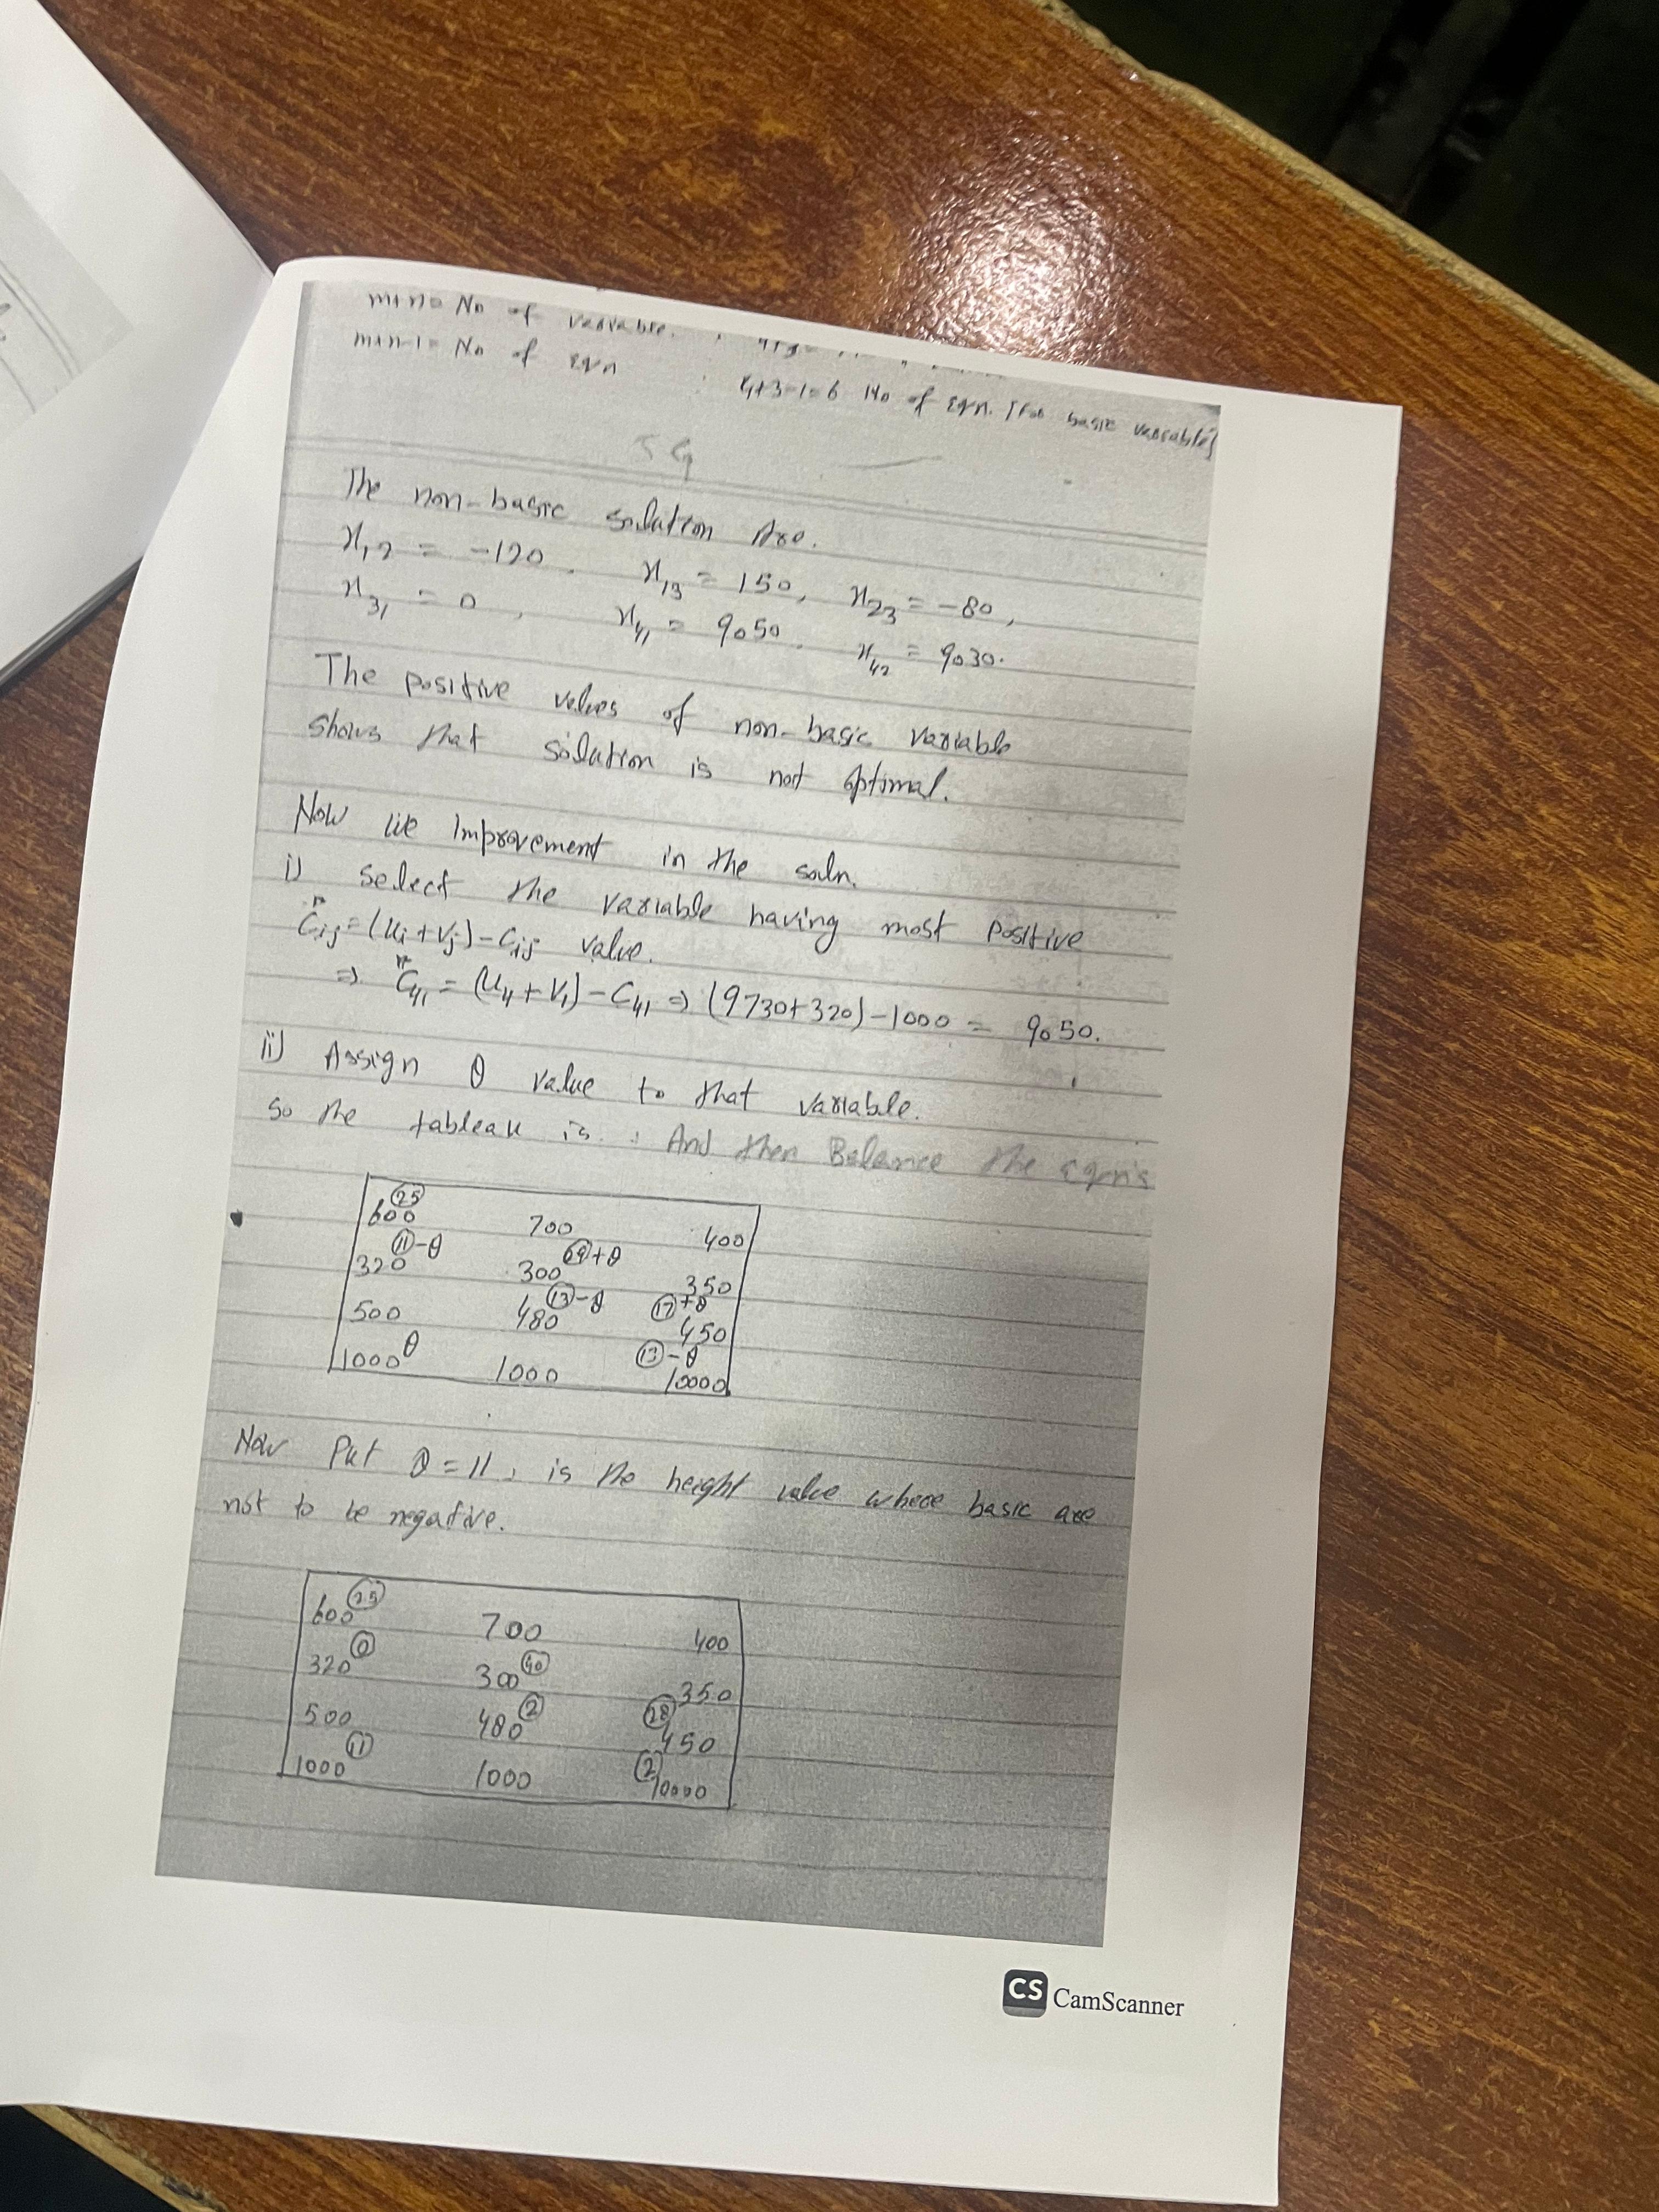 m+n= No of variable.
m+n-1= No of eqn
4+3-1=6 No of eqn. [For basic variable]
The non-basic solution Are.
x12 = -120, x13 = 150, x23 = -80,
x31 = 0, x41 = 9050, x42 = 9030.
The positive values of non-basic variable
shows that solution is not optimal.
Now we improvement in the soln.
i) Select the variable having most positive
C̄ij=(Ui+Vj)-Cij value.
⇒ C̄41 = (U4+V1)-C41 ⇒ (9730+320)-1000 = 9050.
ii) Assign θ value to that variable.
So the tableau is: And then Balance the eqn's
600 (25) 700 400
320 (11)-θ 300 (29)+θ 350
500 480 (13)-θ 450 (17)+θ
1000 θ 1000 10000 (13)-θ
Now Put θ=11, is the height value where basic are
not to be negative.
600 (25) 700 400
320 (0) 300 (40) 350
500 480 (2) 450 (28)
1000 (11) 1000 10000 (2)
CS CamScanner